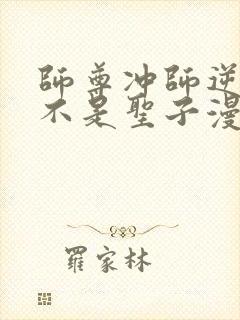 師尊冲師逆
不是聖子漫
羅家林